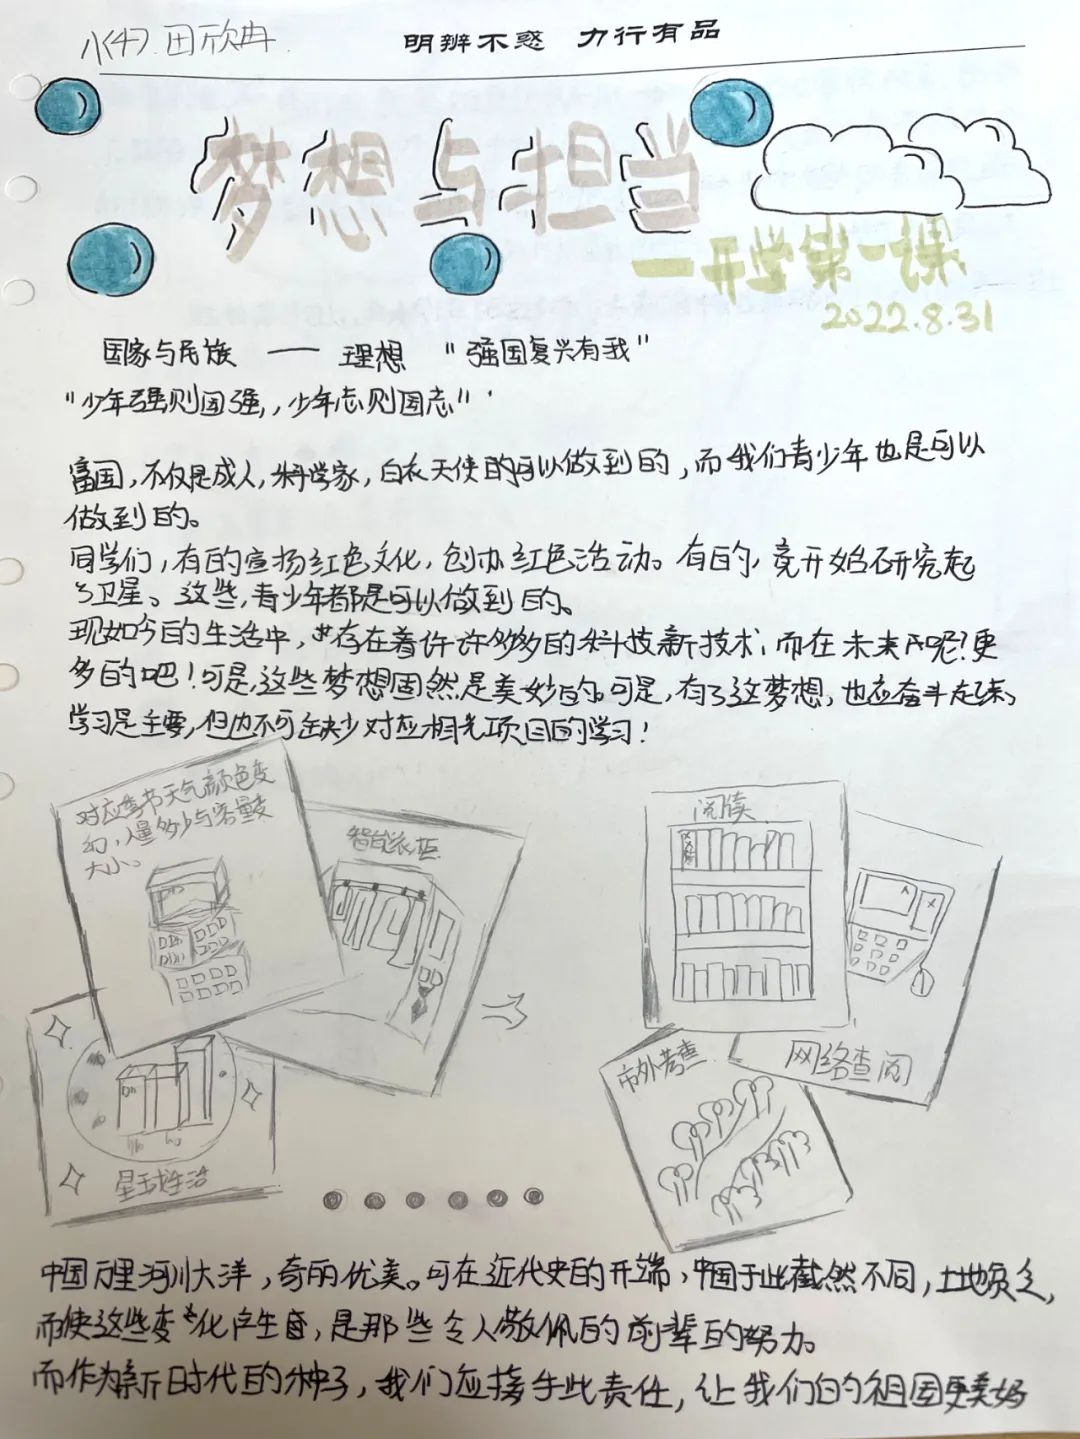 八(4). 田欣冉.
明辨不惑 力行有品
梦想与担当
一开学第一课
2022.8.31
国家与民族 —— 理想 "强国复兴有我"
"少年强则国强,,少年志则国志"
富国,不仅是成人,科学家,白衣天使的可以做到的,而我们青少年也是可以
做到的。
同学们,有的宣扬红色文化,创办红色活动。有的,竟开始研究起
了卫星。这些,青少年都是可以做到的。
现如今的生活中,存在着许许多多的科技新技术,而在未来呢?更
多的吧!可是,这些梦想固然是美妙的。可是,有了这梦想,也应奋斗起来,
学习是主要,但也不可缺少对应相关项目的学习!
对应季节天气颜色变
幻,人量多少与容量变
大小。
智能衣柜
阅读
星球生活
市外考查
网络查阅
中国万里河川大洋,奇丽优美。可在近代史的开端,中国于此截然不同,土地贫乏,
而使这些变化产生的,是那些令人敬佩的前辈的努力。
而作为新时代的种子,我们应接手此责任,让我们的祖国更美好